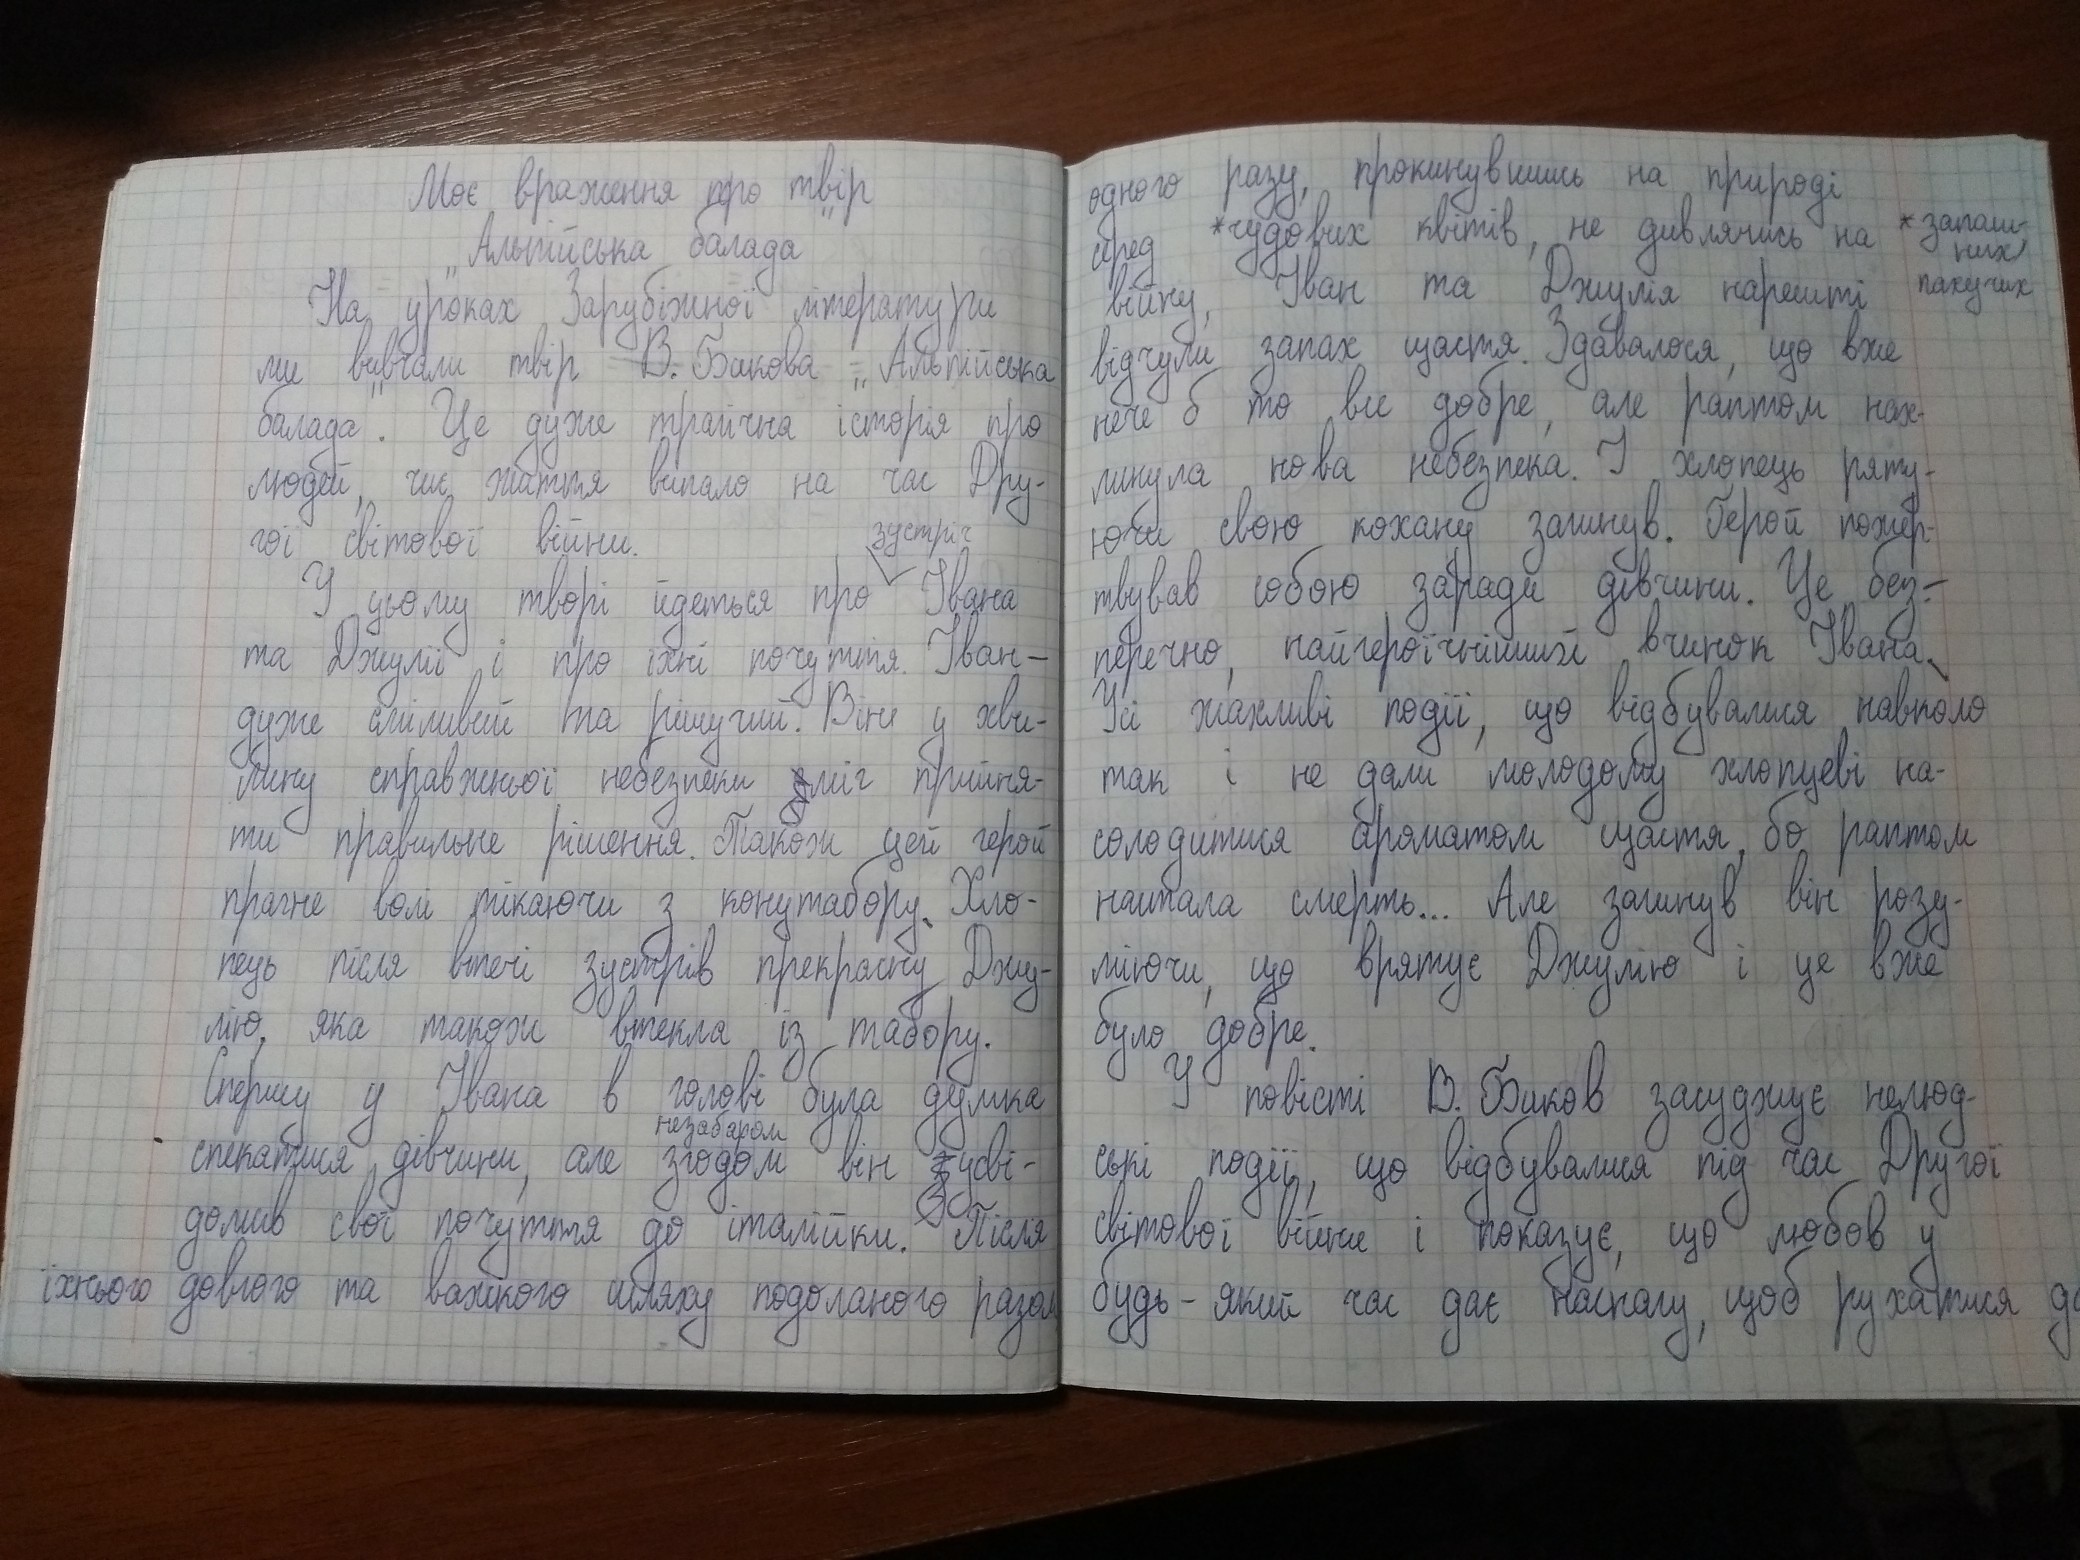 Моє враження про твір
„Альпійська балада"
На уроках Зарубіжної літератури
ми вивчали твір В. Бикова „Альпійська
балада". Це дуже трагічна історія про
людей, чиє життя випало на час Дру-
гої світової війни.
зустріч
У цьому творі йдеться про Івана
та Джулії і про їхні почуття. Іван –
дуже сміливий та рішучий. Він у хви-
лину справжньої небезпеки зміг прийня-
ти правильне рішення. Також цей герой
прагне волі тікаючи з концтабору. Хло-
пець після втечі зустрів прекрасну Джу-
лію, яка також втекла із табору.
Спершу у Івана в голові була думка
незабаром
спекатися дівчини, але згодом він усві-
домив свої почуття до італійки. Після
їхнього довгого та важкого шляху подоланого разом
одного разу, прокинувшись на природі
серед *чудових квітів, не дивлячись на *запаш-
них
війну, Іван та Джулія нарешті пахучих
відчули запах щастя. Здавалося, що вже
нече б то все добре, але раптом нах-
линула нова небезпека. І хлопець ряту-
ючи свою кохану загинув. Герой пожер-
твував собою заради дівчини. Це без-
перечно, найгероїчніший вчинок Івана.
Усі жахливі події, що відбувалися навколо
так і не дали молодому хлопцеві на-
солодитися ароматом щастя, бо раптом
настала смерть... Але загинув він розу-
міючи, що врятує Джулію і це вже
було добре.
У повісті В. Биков засуджує нелюд-
ські події, що відбувалися під час Другої
світової війни і показує, що любов у
будь-який час дає наснагу, щоб рухатися до